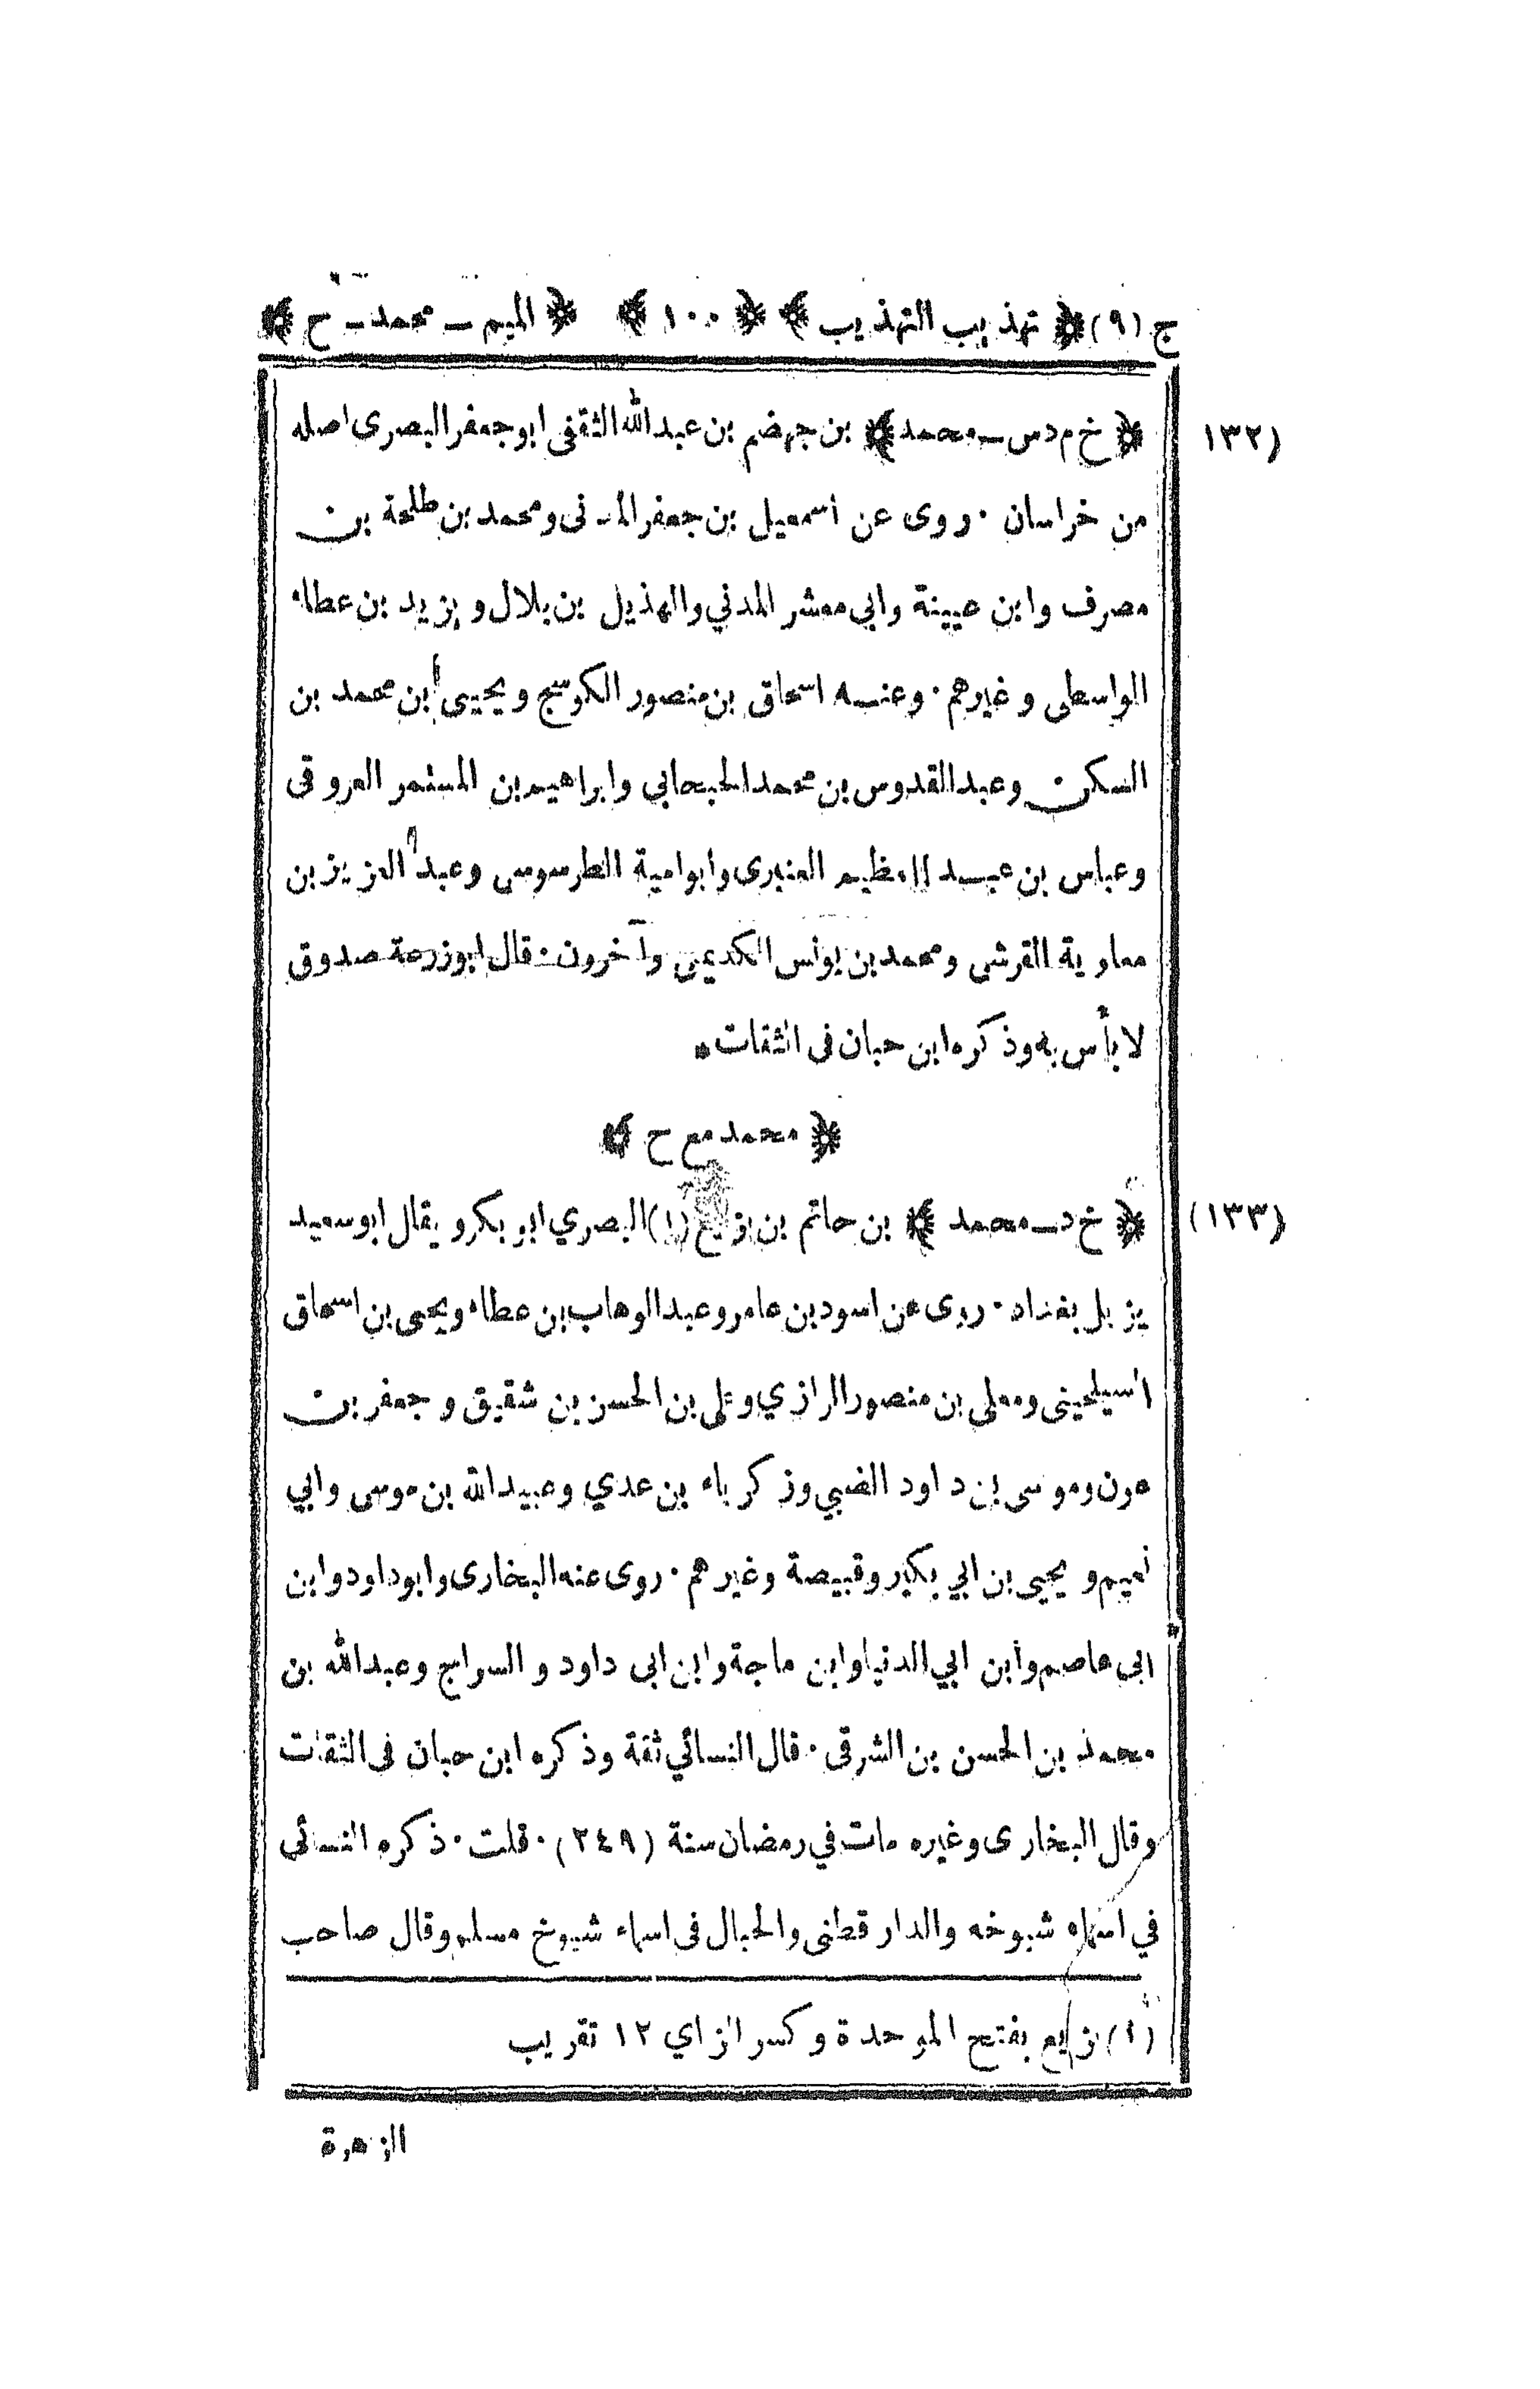 ج (٩) ﴿ تهذيب التهذيب ﴾ ﴿ ١٠٠ ﴾ ﴿ الميم ــ محمد ــ ح ﴾
١٣٢) ﴿ خ م د س ــ محمد ﴾ بن جهضم بن عبد الله الثقفى ابو جعفر البصرى اصله
من خراسان ٠ روى عن اسمعيل بن جعفر المدنى ومحمد بن طلحة بن
مصرف وابن عيينة وابي معشر المدني والهذيل بن بلال ويزيد بن عطاء
الواسطى وغيرهم ٠ وعنه اسحاق بن منصور الكوسج ويحيى ابن محمد بن
السكن وعبد القدوس بن محمد الحبحابي وابراهيم بن المستمر العروقى
وعباس بن عبد العظيم العنبرى وابو امية الطرسوسى وعبد العزيز بن
معاوية القرشى ومحمد بن يونس الكديمى وآخرون ٠ قال ابوزرعة صدوق
لا بأس به وذكره ابن حبان فى الثقات *
﴿ محمد مع ح ﴾
(١٣٣) ﴿ خ د ــ محمد ﴾ بن حاتم بن بزيع (١) البصري ابو بكر ويقال ابو سعيد
يزيل بغداد ٠ روى عن اسود بن عامر وعبد الوهاب بن عطاء ويحيى بن اسحاق
اسيلحينى ومعلى بن منصور الرازي وعلى بن الحسن بن شقيق وجعفر بن
عون وموسى بن داود الضبي وزكرياء بن عدي وعبيد الله بن موسى وابي
نعيم ويحيى بن ابي بكير وقبيصة وغيرهم ٠ روى عنه البخارى وابو داود وابن
ابى عاصم وابن ابي الدنيا وابن ماجة وابن ابى داود والسراج وعبد الله بن
محمد بن الحسن بن الشرقى ٠ قال النسائي ثقة وذكره ابن حبان فى الثقات
وقال البخارى وغيره مات في رمضان سنة (٢٤٩) ٠ قلت ٠ ذكره النسائى
في اسماء شيوخه والدار قطنى والحبال فى اسماء شيوخ مسلم وقال صاحب
(١) بزيع بفتح الموحدة وكسر الزاي ١٢ تقريب
الزهرة